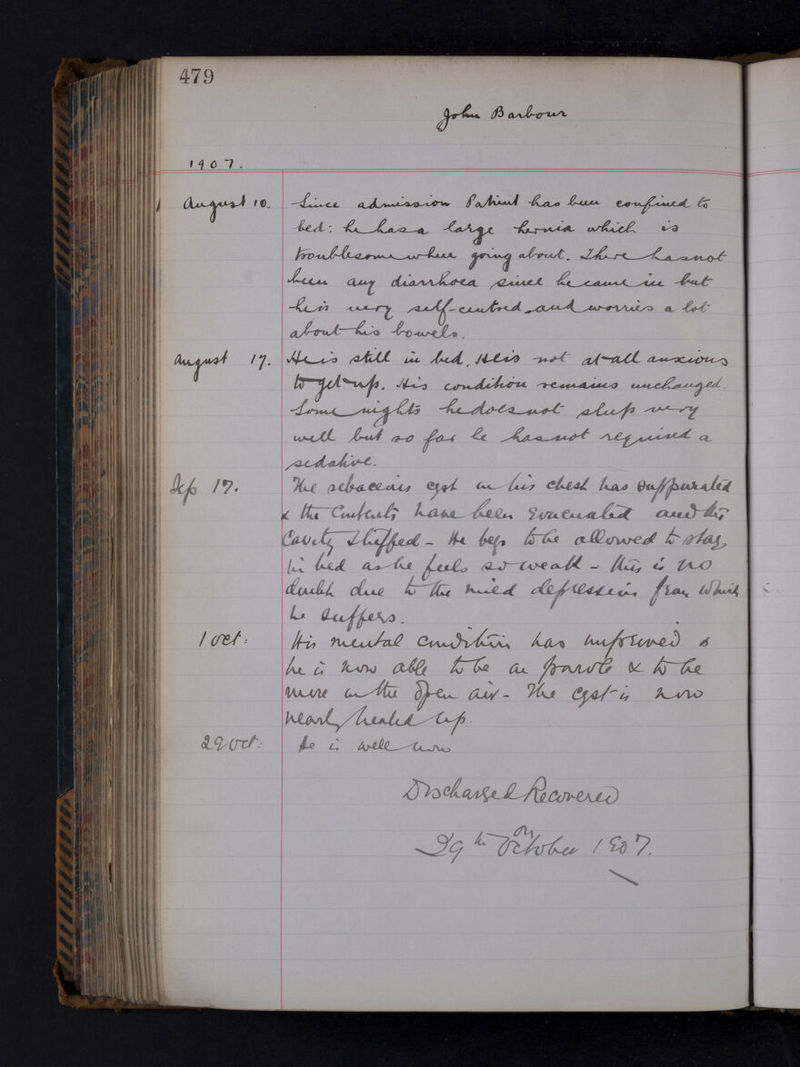 479
John Barbour
1907.
August 10. Since admission Patient has been confined to
bed: he has a large hernia which is
troublesome when going about. There has not
been any diarrhoea since he came in but
he is very self-centred and worries a lot
about his bowels.
August 17. He is still in bed. He is not at all anxious
to get up. His condition remains unchanged.
Some nights he does not sleep very
well but so far he has not required a
sedative.
Sep 17. The sebaceous cyst on his chest has suppurated
& the contents have been evacuated and the
cavity stuffed - He begs to be allowed to stay
in bed as he feels so weak - this is no
doubt due to the mild depression from which
he suffers.
1 Oct: His mental condition has improved &
he is now able to be on parole & to be
more in the open air - The cyst is now
nearly healed up.
29 Oct: He is well now
Discharged Recovered
on
29th October 1907.